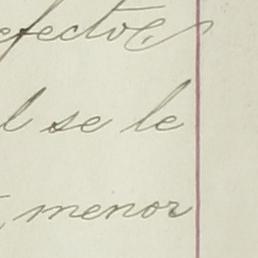 efectos
l se le
, menor